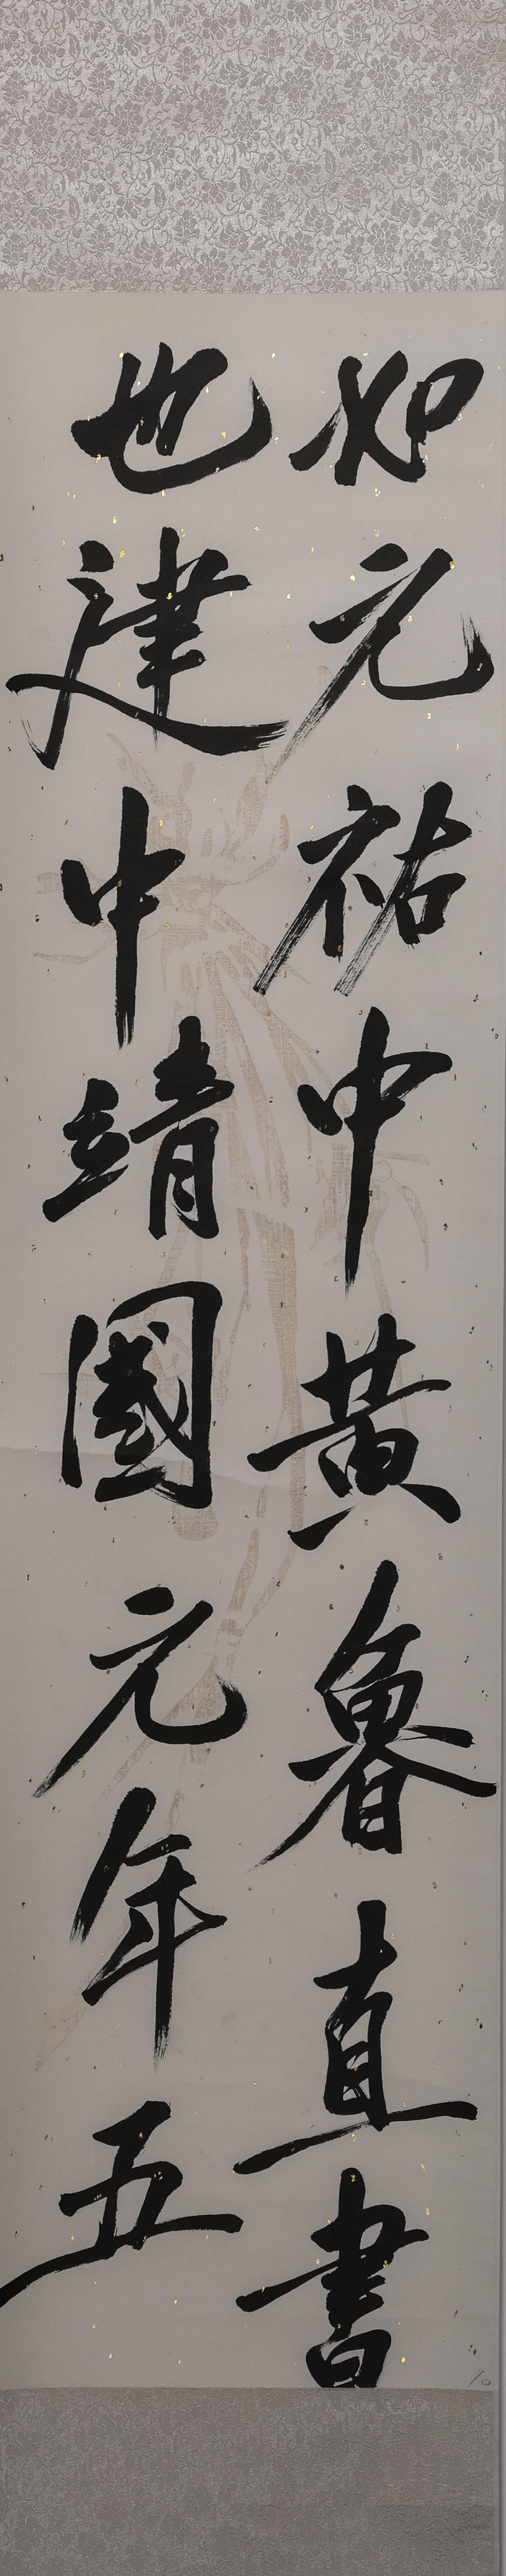 如元祐中黃魯直書
也建中靖國元年五
10